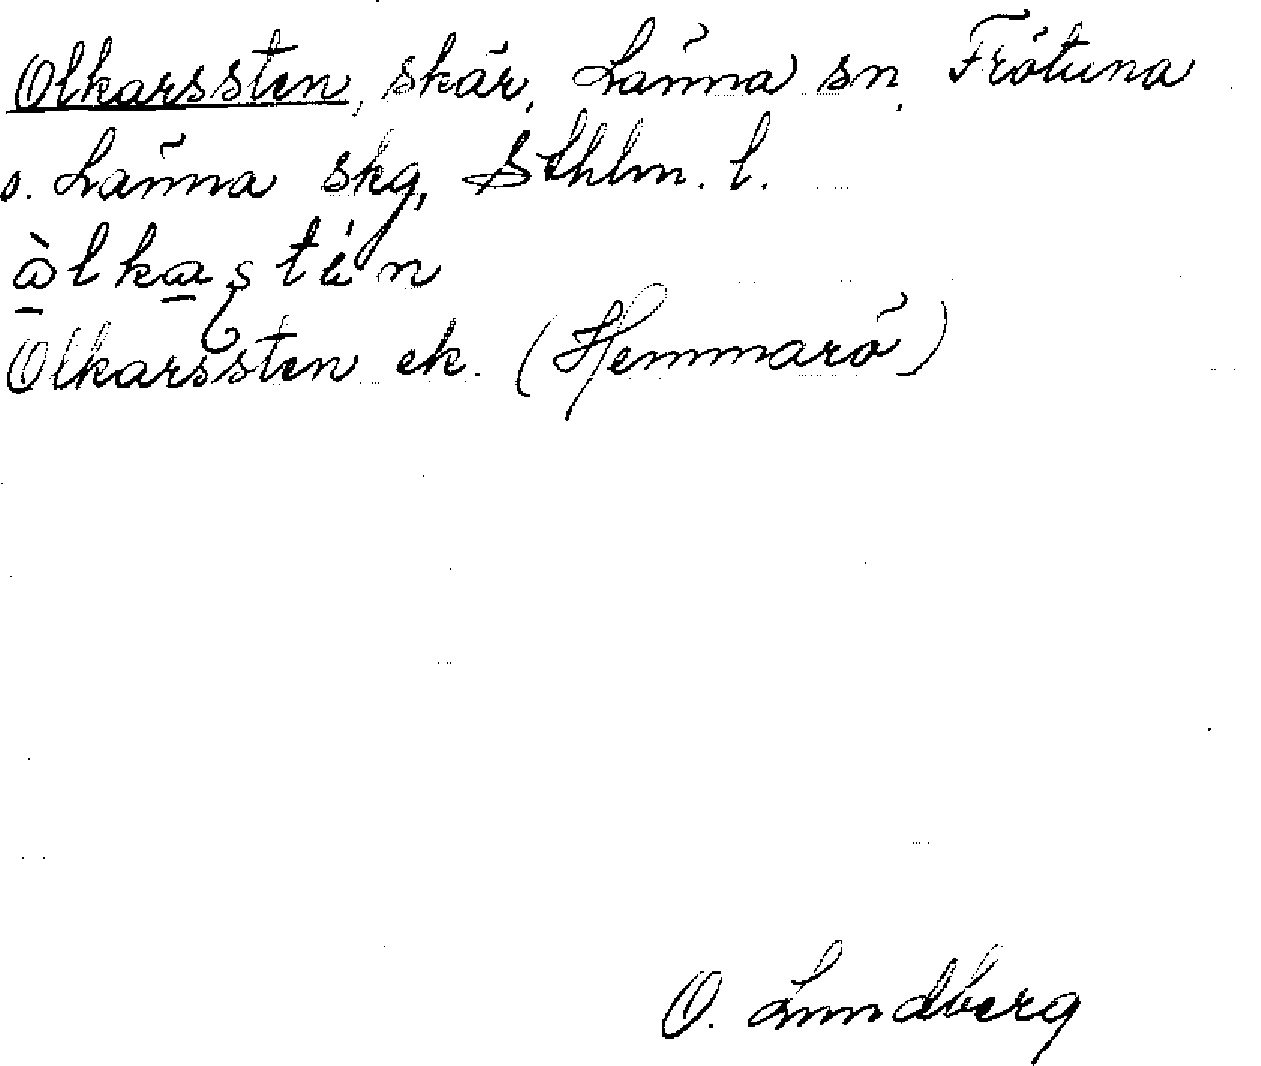 Olkarssten, skär, Länna sn, Frötuna
o. Länna skg, Sthlm. l.
Olkarssten ek. (Hemmarö)
O. Lundberg